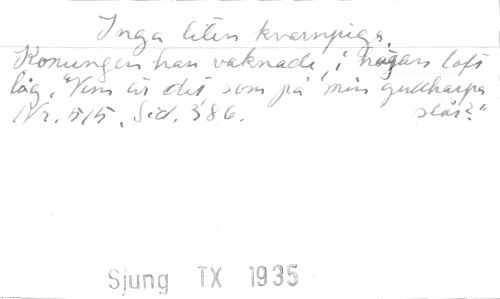 Inga liten kvarnpiga.
Konungen han vaknade, i högan loft
låg. "Vem är det, som på min gullharpa
Nr. 515, Sid. 386. slår?"
Sjung TX 1935